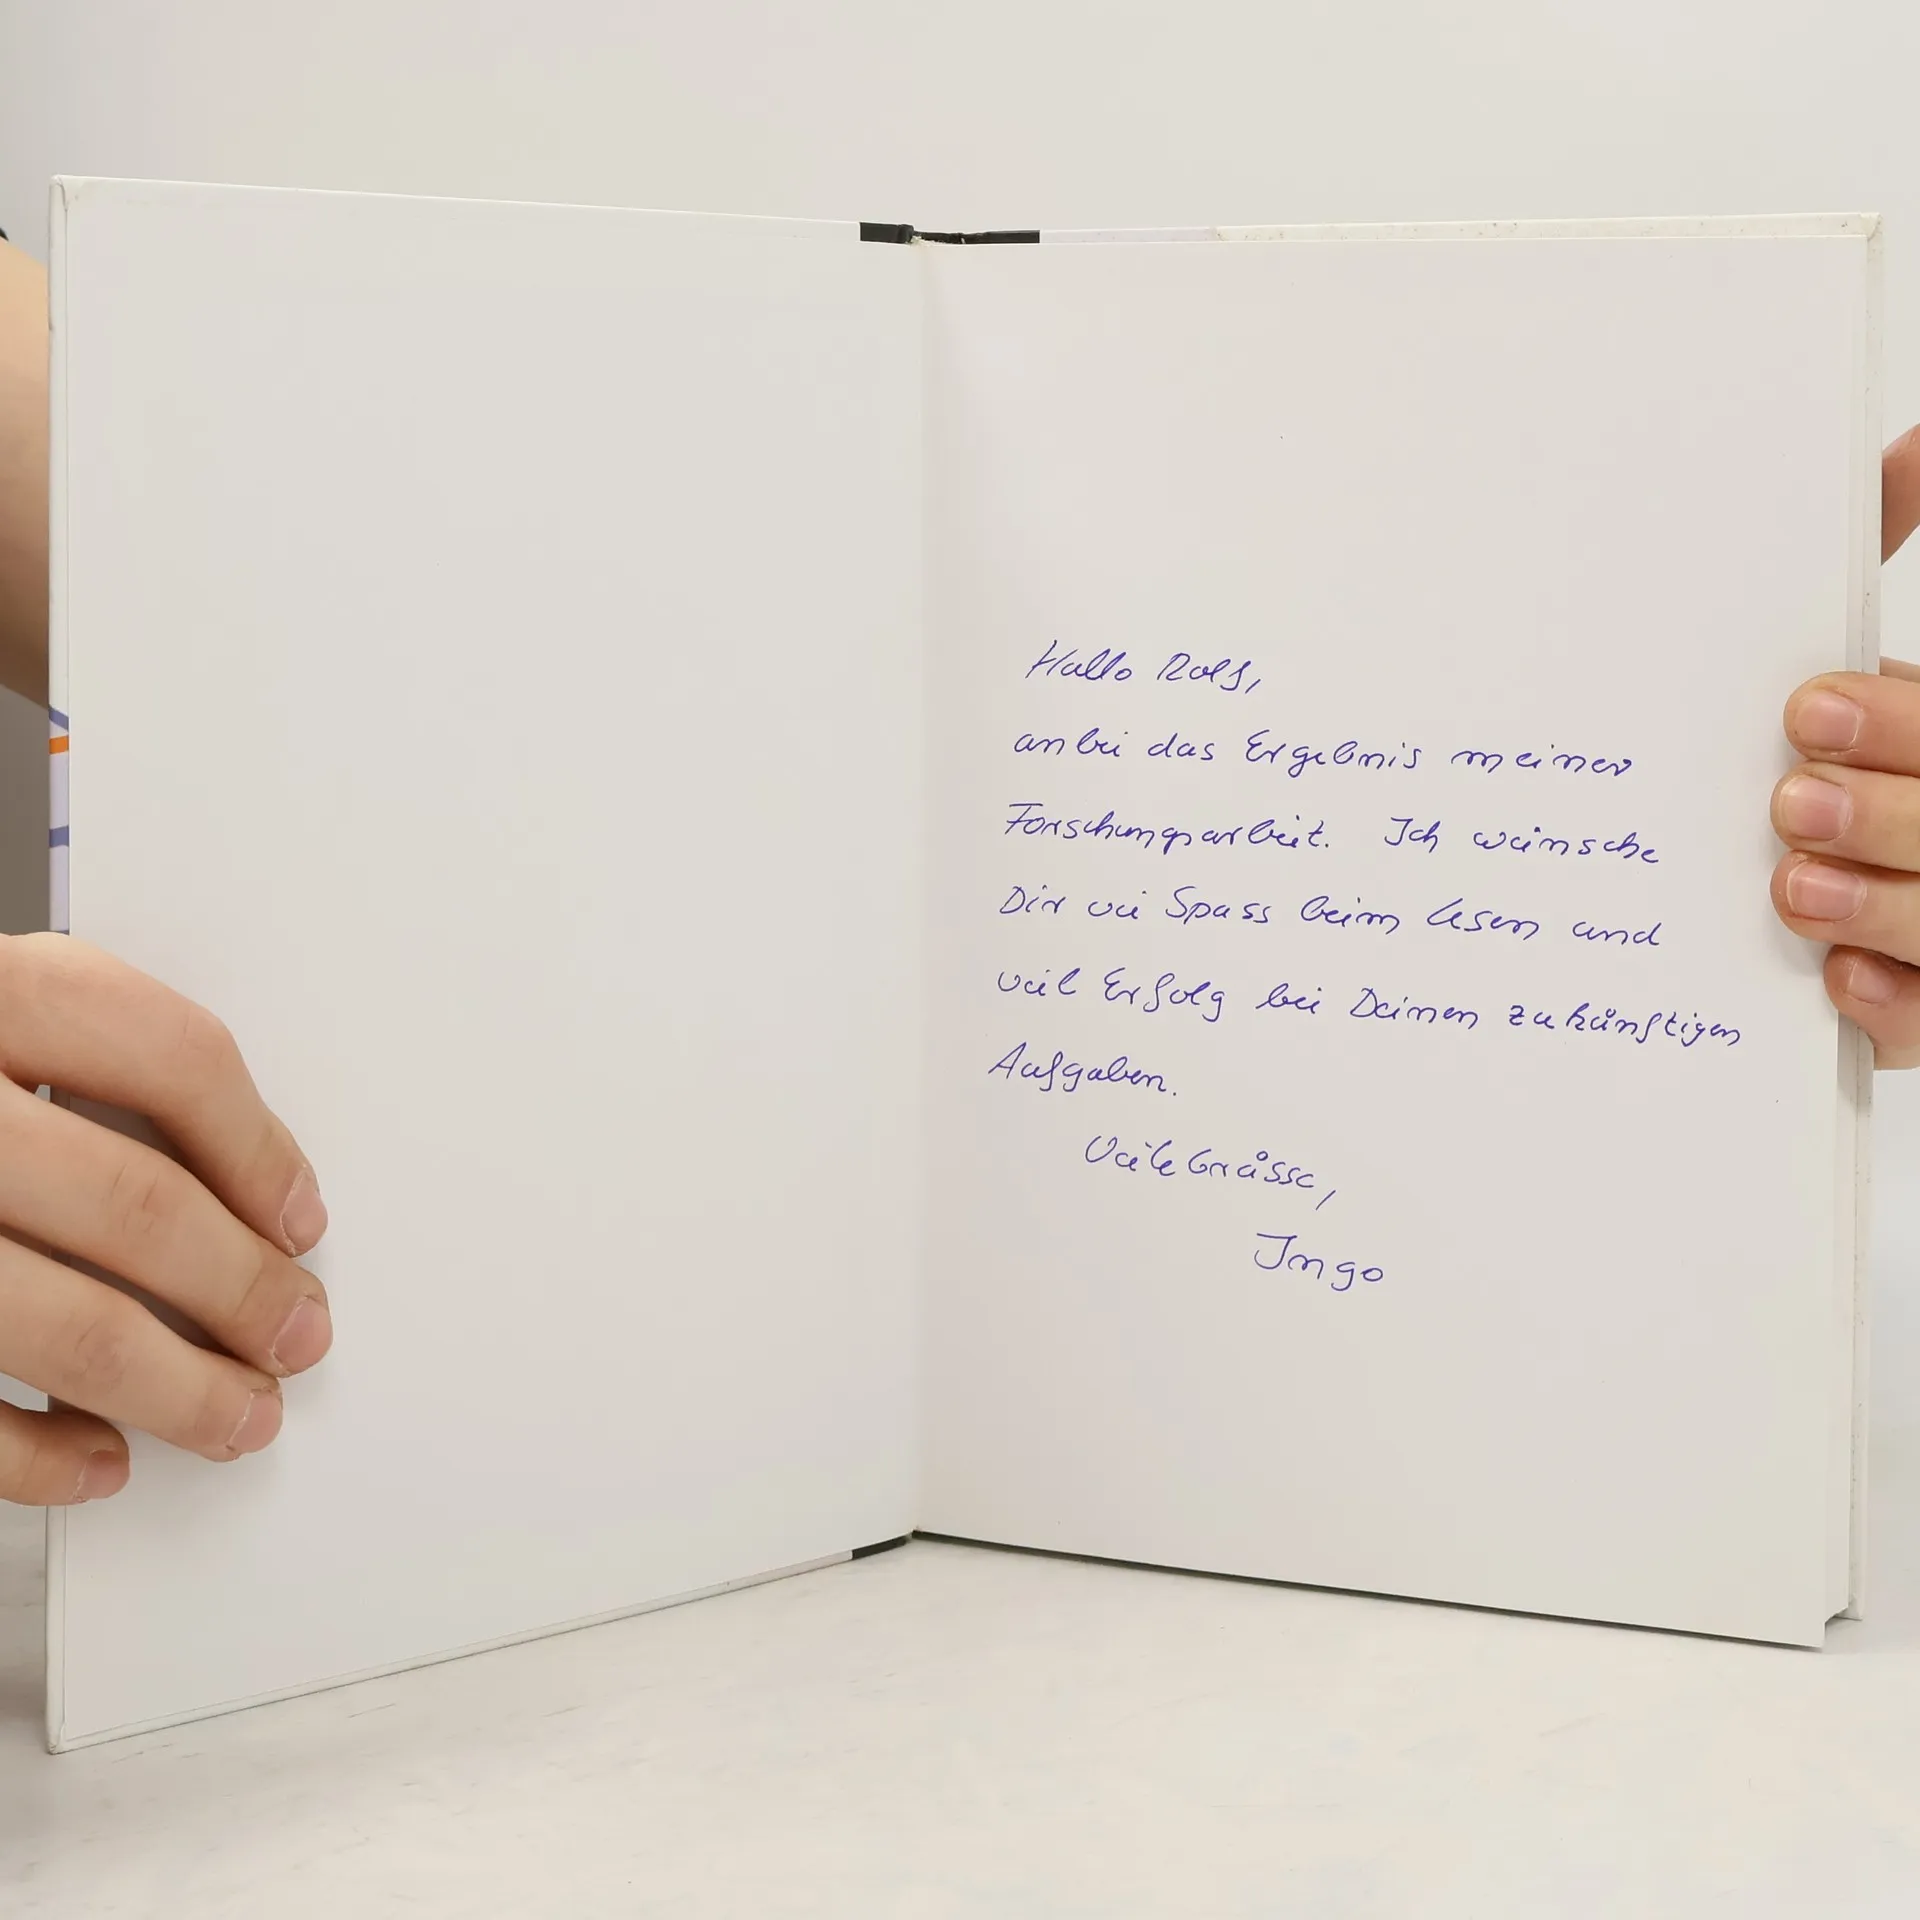 Hallo Rolf,
anbei das Ergebnis meiner
Forschungsarbeit. Ich wünsche
Dir viel Spass beim lesen und
viel Erfolg bei Deinen zukünftigen
Aufgaben.
Viele Grüsse,
Ingo